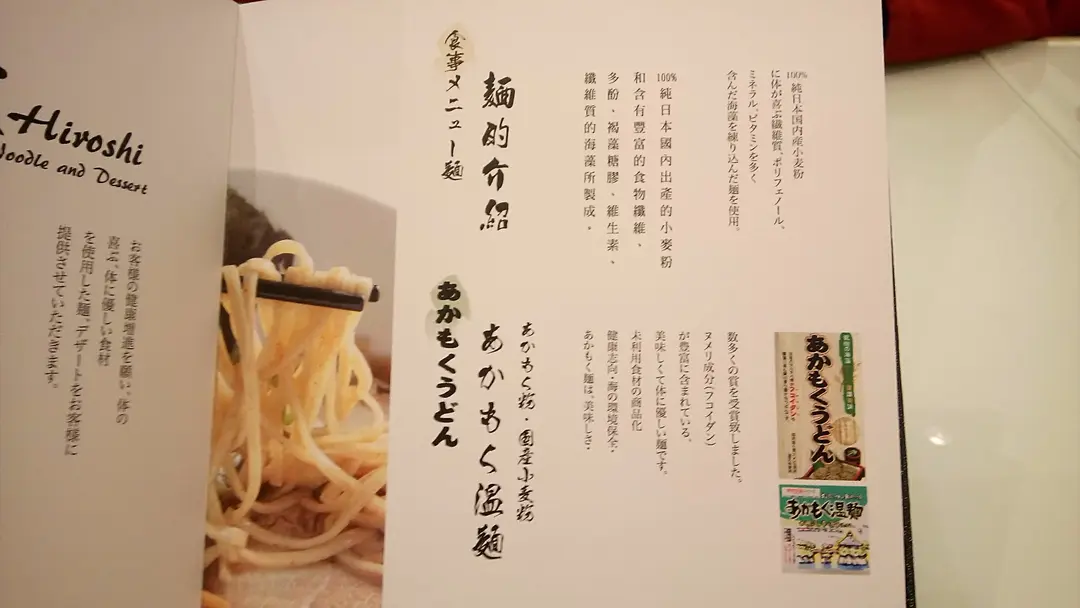 Hiroshi
Noodle and Dessert
お客様の健康増進を願い、体の
喜ぶ、体に優しい食材
を使用した麺、デザートをお客様に
提供させていただきます。
食事メニュー麺
麵的介紹
100%純日本國內出產的小麥粉
和含有豐富的食物纖維、
多酚、褐藻糖膠、維生素、
纖維質的海藻所製成。
100%純日本国内産小麦粉
に体が喜ぶ繊維質、ポリフェノール、
ミネラル、ビタミンを多く
含んだ海藻を練り込んだ麺を使用。
あかもくうどん
あかもく粉・国産小麦粉
あかもく温麺
あかもく麺は、美味しさ・
健康志向・海の環境保全・
未利用食材の商品化
美味しくて体に優しい麺です。
が豊富に含まれている。
ヌメリ成分(フコイダン)
数多くの賞を受賞致しました。
あかもくうどん
あかもく温麺